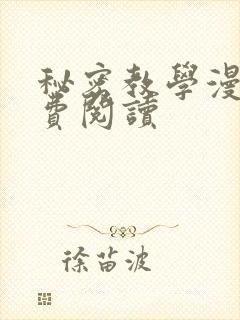 秘密教學漫
費閱讀
徐苗波